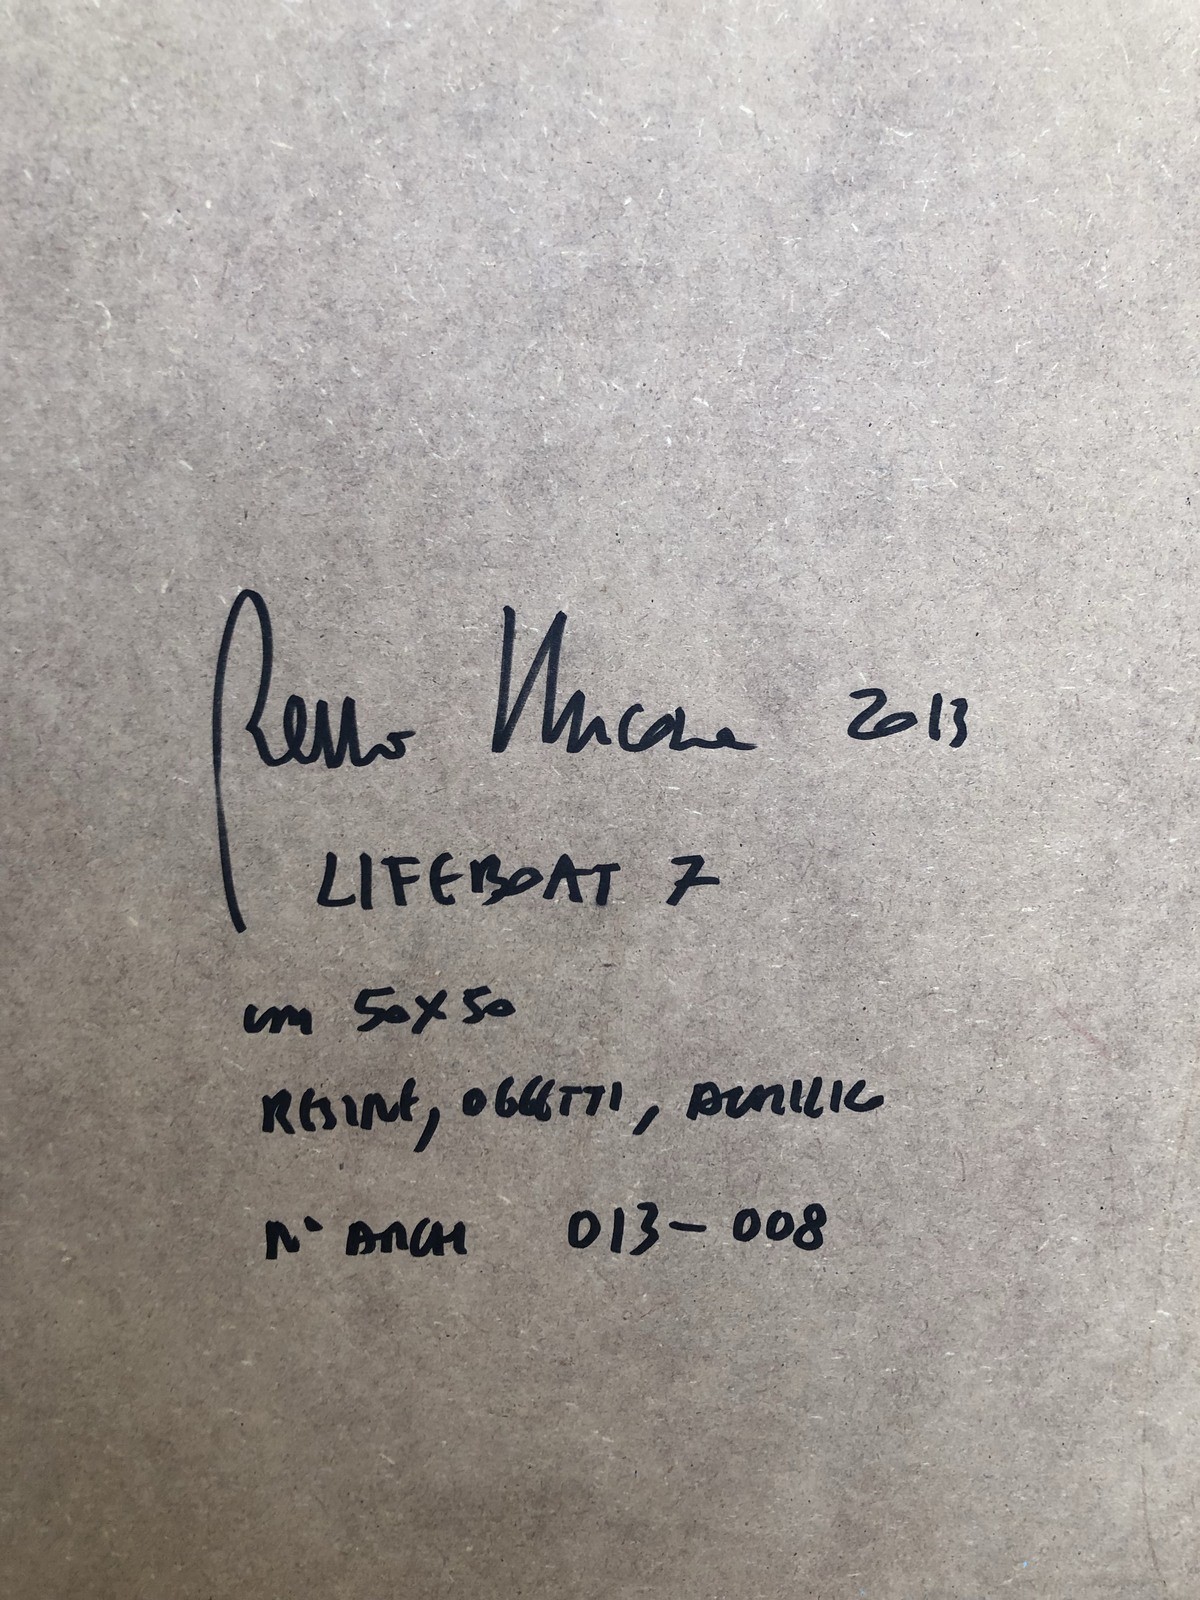 Renzo Nucara 2013
LIFEBOAT 7
cm 50X50
RESINE, OGGETTI, ACRILICO
N° ARCH 013-008